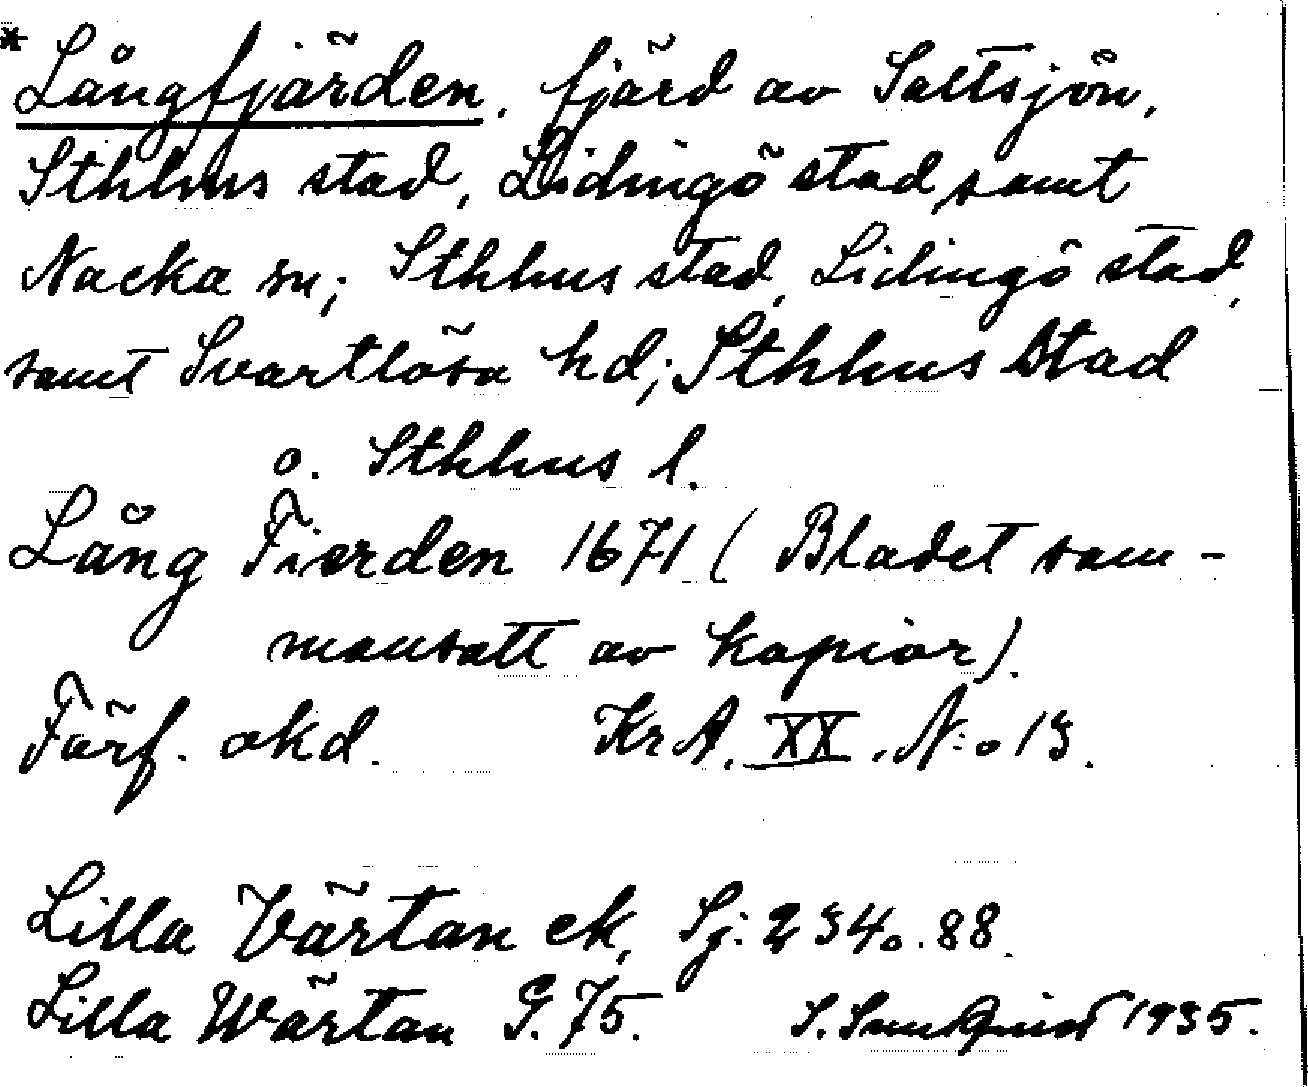 *Långfjärden, fjärd av Saltsjön,
Sthlms stad, Lidingö stad, samt
Nacka sn; Sthlms stad, Lidingö stad,
samt Svartlösa hd; Sthlms Stad
o. Sthlms l.
Lång Fierden 1671 (Bladet sam-
mansatt av kopior).
Förf. okd. Kr A. XX. N:o 13.
Lilla Värtan ek, Sj: 234o. 88.
Lilla Wärtan G. 75. S. 1935.